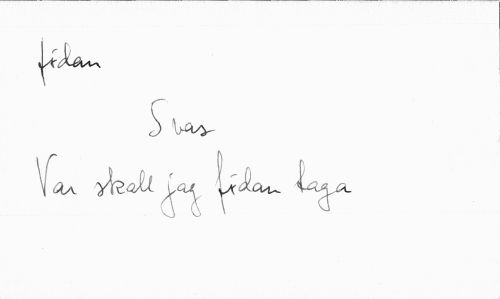 fidan
Svas
Var skall jag fidan taga